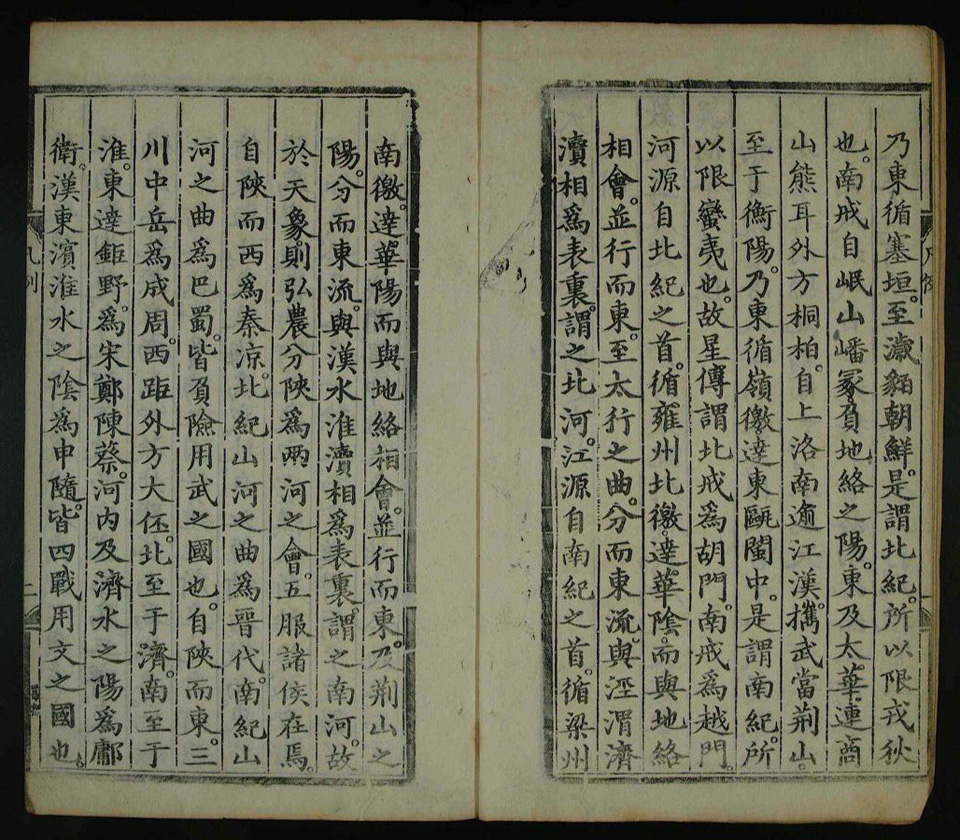 乃東循塞垣。至濊貊朝鮮。是謂北紀。所以限戎狄
也。南戒自岷山嶓冢負地絡之陽。東及太華。連商
山熊耳外方桐柏。自上洛南逾江漢。攜武當荊山。
至于衡陽。乃東循嶺徼達東甌閩中。是謂南紀。所
以限蠻夷也。故星傳謂北戒為胡門。南戒為越門。
河源自北紀之首。循雍州北徼。達華陰。而與地絡
相會。並行而東。至太行之曲。分而東流。與涇渭濟
瀆相為表裏。謂之北河。江源自南紀之首。循梁州
南徼。達華陽而與地絡相會。並行而東。及荊山之
陽。分而東流。與漢水淮瀆相為表裏。謂之南河。故
於天象。則弘農分陝為兩河之會。五服諸侯在焉。
自陝而西為秦涼。北紀山河之曲為晉代。南紀山
河之曲為巴蜀。皆負險用武之國也。自陝而東。三
川中岳為成周。西距外方大伾。北至于濟。南至于
淮。東達鉅野。為宋鄭陳蔡。河內及濟水之陽為鄘
衛。漢東濱淮水之陰為申隨。皆四戰用文之國也。
凡例
二